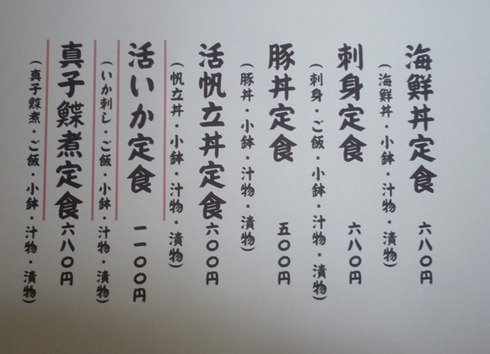 海鮮丼定食 六八〇円
(海鮮丼・小鉢・汁物・漬物)
刺身定食 六八〇円
(刺身・ご飯・小鉢・汁物・漬物)
豚丼定食 五〇〇円
(豚丼・小鉢・汁物・漬物)
活帆立丼定食 六〇〇円
(帆立丼・小鉢・汁物・漬物)
活いか定食 一一〇〇円
(いか刺し・ご飯・小鉢・汁物・漬物)
真子鰈煮定食 六八〇円
(真子鰈煮・ご飯・小鉢・汁物・漬物)